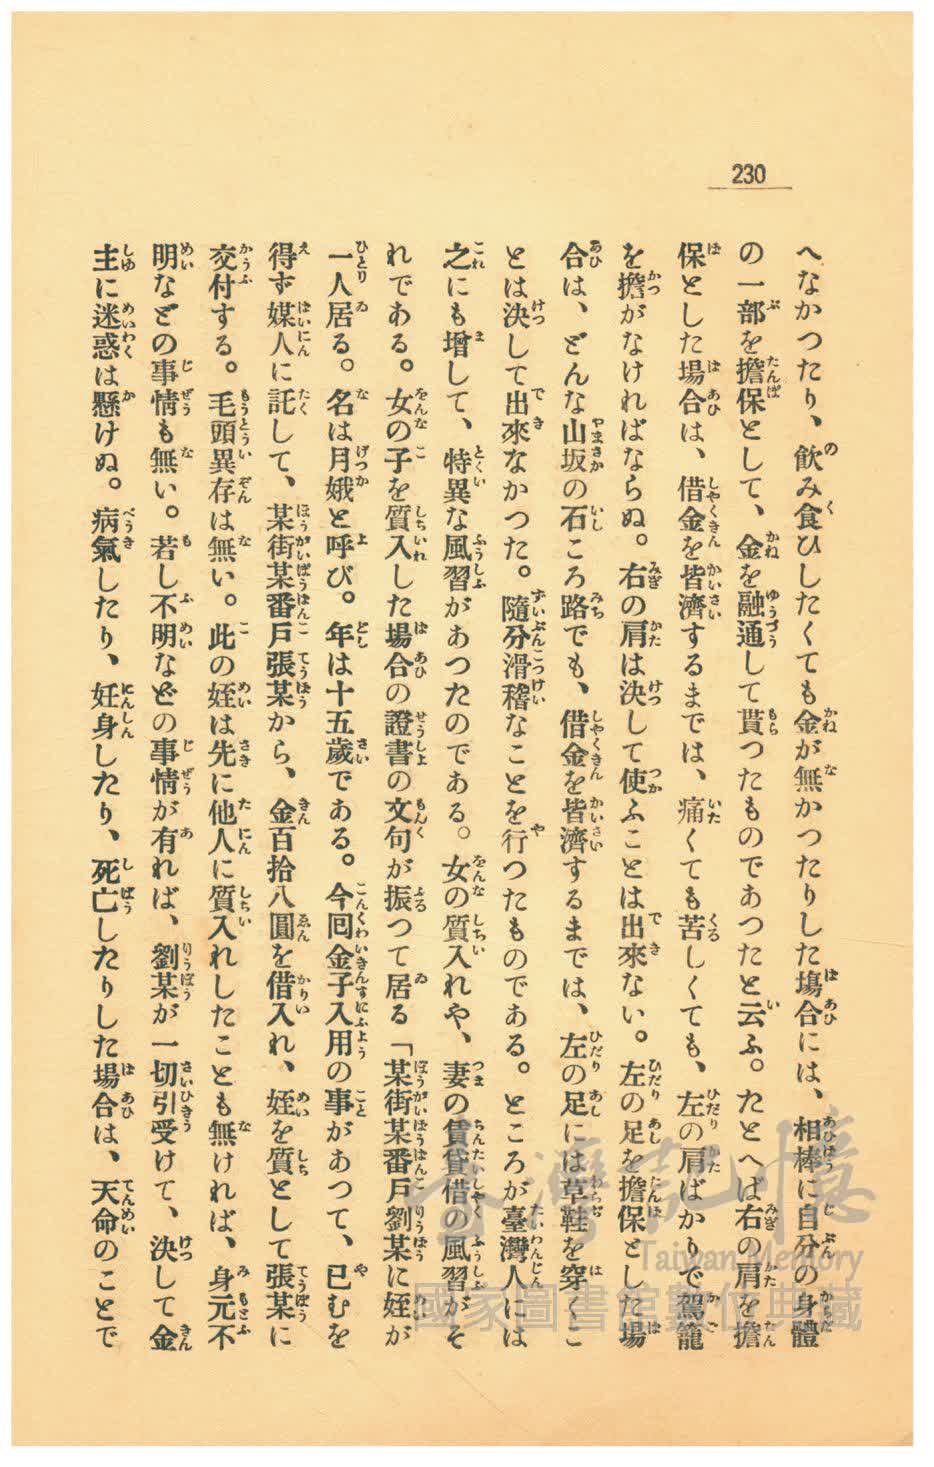 230
へなかつたり、飲み食ひしたくても金が無かつたりした塲合には、相棒に自分の身體
の一部を擔保として、金を融通して貰つたものであつたと云ふ。たとへば右の肩を擔
保とした塲合は、借金を皆濟するまでは、痛くても苦しくても、左の肩ばかりで駕籠
を擔がなければならぬ。右の肩は決して使ふことは出來ない。左の足を擔保とした塲
合は、どんな山坂の石ころ路でも、借金を皆濟するまでは、左の足には草鞋を穿くこ
とは決して出來なかつた。隨分滑稽なことを行つたものである。ところが臺灣人には
之にも增して、特異な風習があつたのである。女の質入れや、妻の賃貸借の風習がそ
れである。女の子を質入した塲合の證書の文句が振つて居る「某街某番戸劉某に姪が
一人居る。名は月娥と呼び。年は十五歲である。今囘金子入用の事があつて、已むを
得ず媒人に託して、某街某番戸張某から、金百拾八圓を借入れ、姪を質として張某に
交付する。毛頭異存は無い。此の姪は先に他人に質入れしたことも無ければ、身元不
明などの事情も無い。若し不明などの事情が有れば、劉某が一切引受けて、決して金
主に迷惑は懸けぬ。病氣したり、妊身したり、死亡したりした塲合は、天命のことで
臺灣記憶
Taiwan Memory
國家圖書館數位典藏